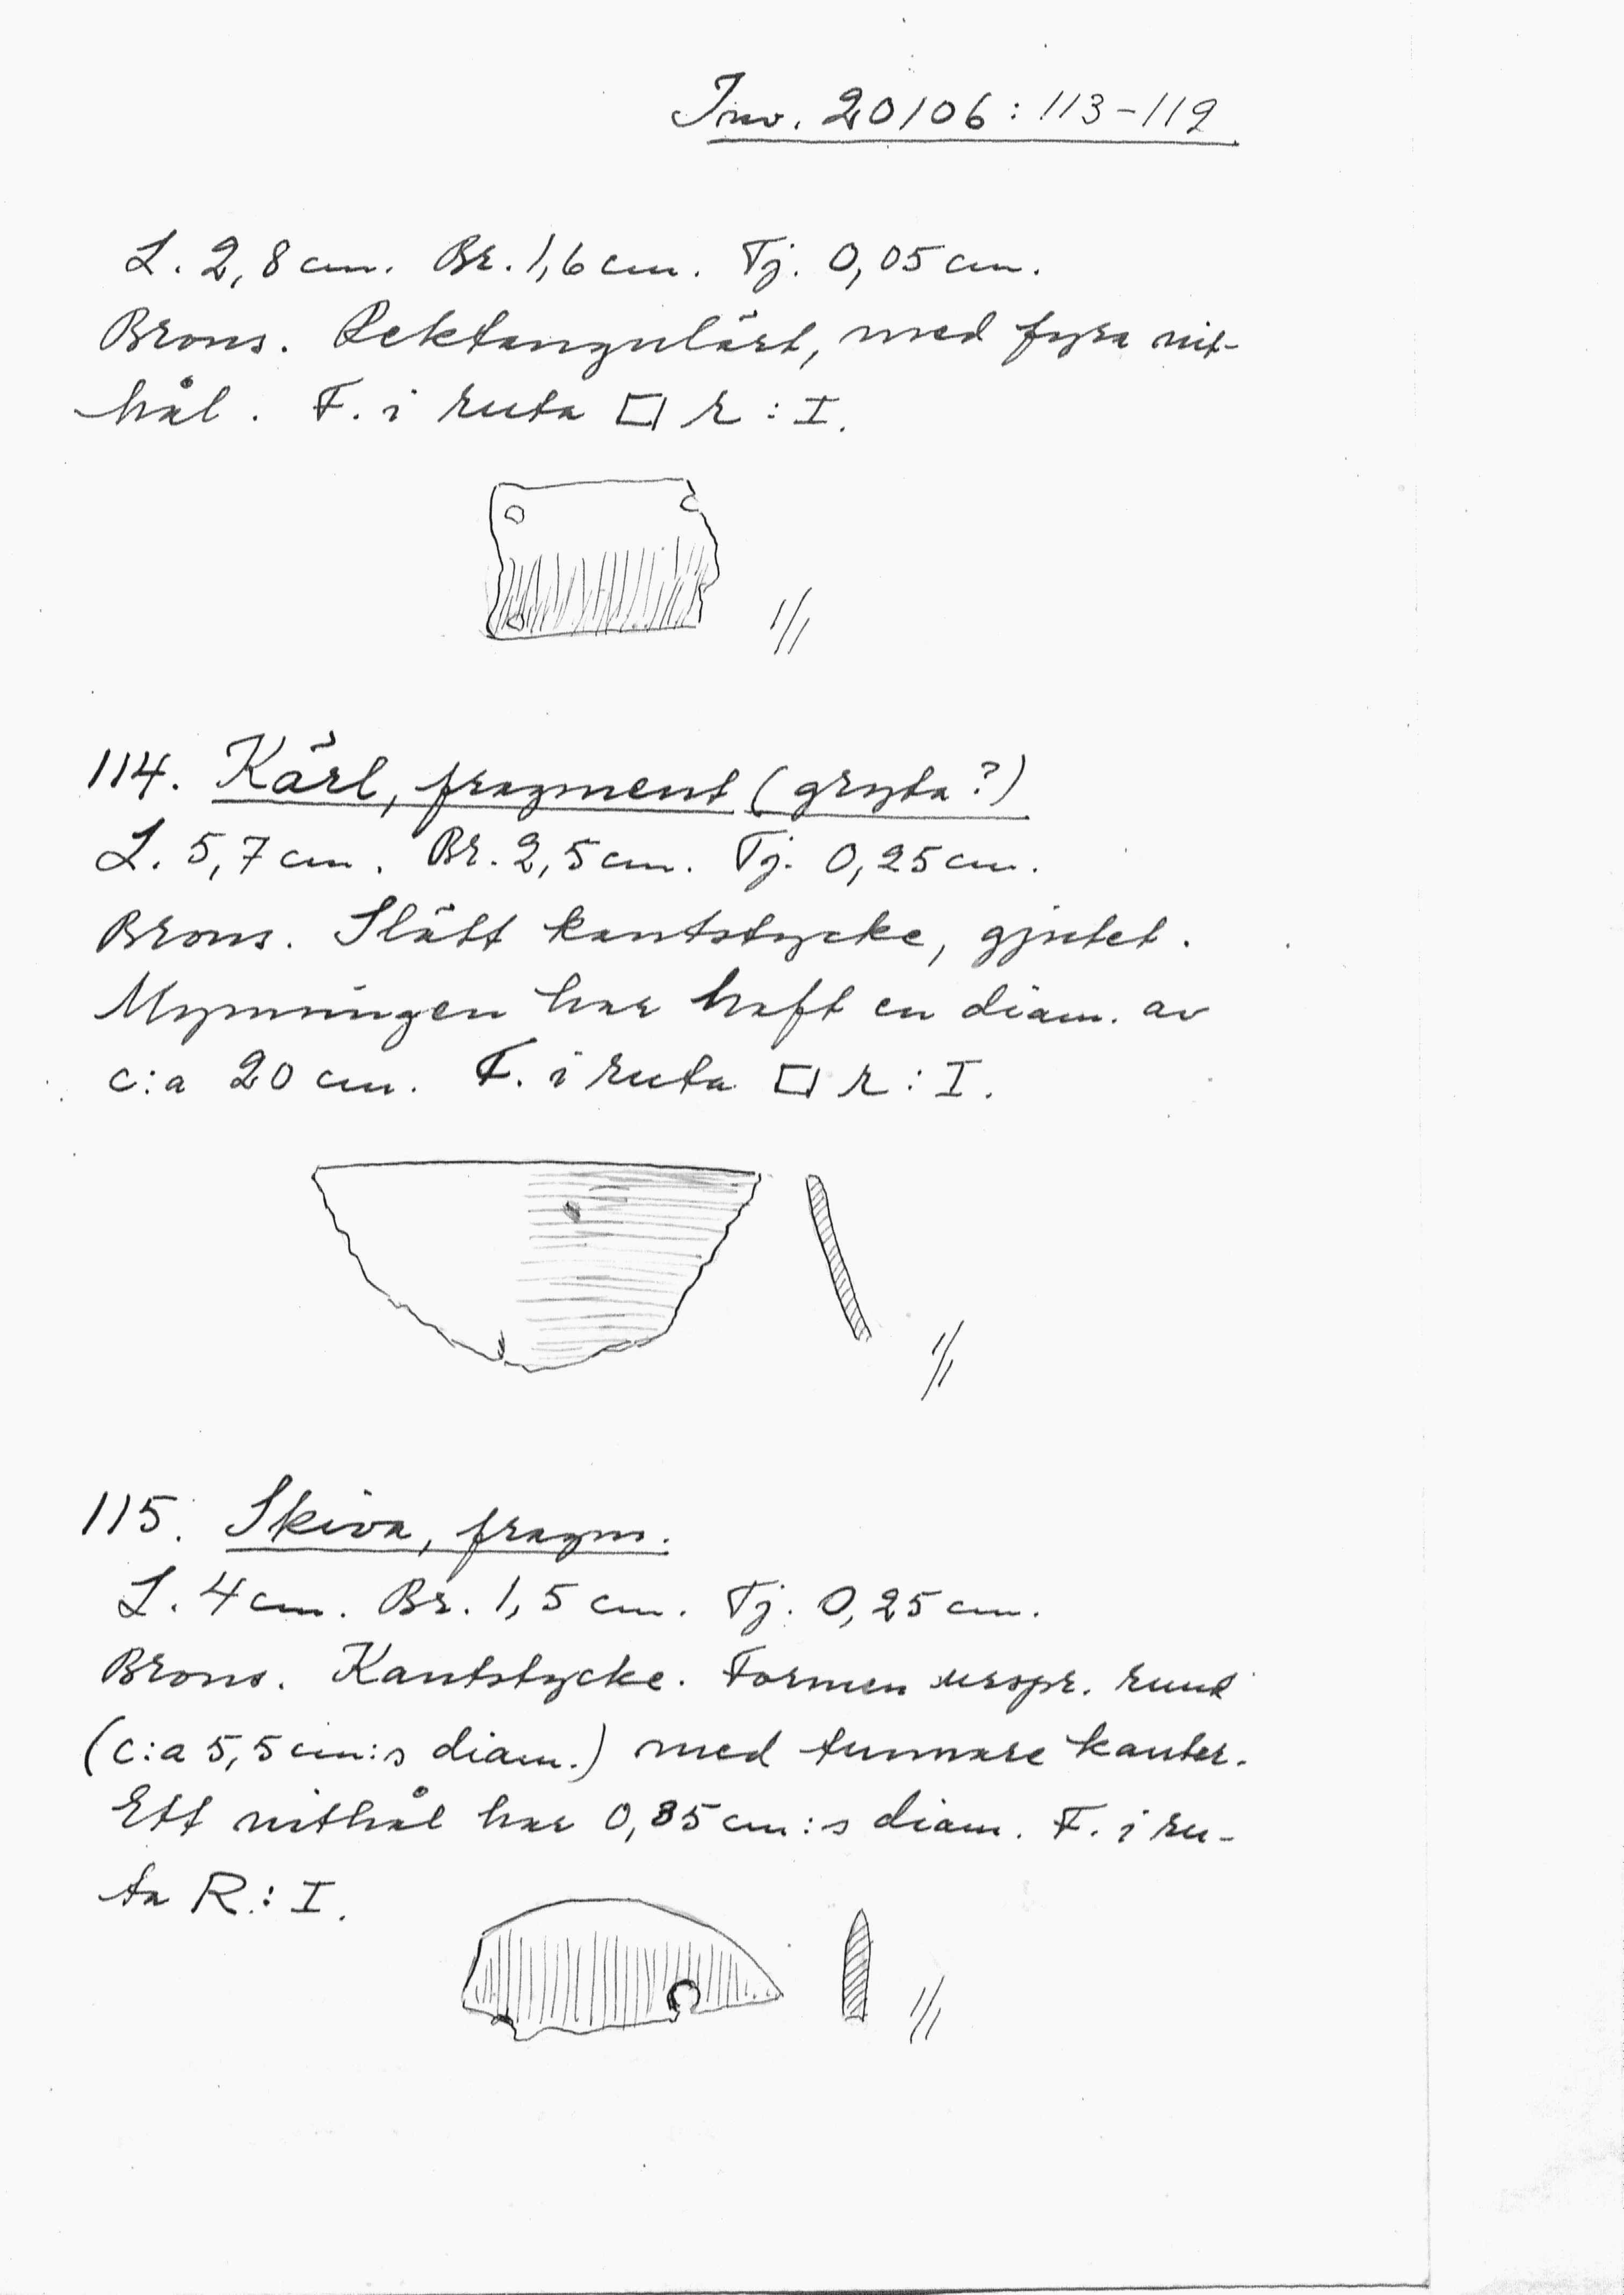 Inv. 20106:113-119
L. 2,8 cm. Br. 1,6 cm. Tj. 0,05 cm.
Brons. Rektangulärt, med fyra nit-
hål. F. i ruta □ r:I.
1/1
114. Kärl, fragment (gryta?)
L. 5,7 cm. Br. 2,5 cm. Tj. 0,25 cm.
Brons. Slätt kantstycke, gjutet.
Mynningen har haft en diam. av
c:a 20 cm. F. i ruta □ r:I.
1/1
115. Skiva, fragm.
L. 4 cm. Br. 1,5 cm. Tj. 0,25 cm.
Brons. Kantstycke. Formen urspr. rund
(c:a 5,5 cm:s diam.) med tunnare kanter.
Ett nithål har 0,35 cm:s diam. F. i ru-
ta R:I.
1/1